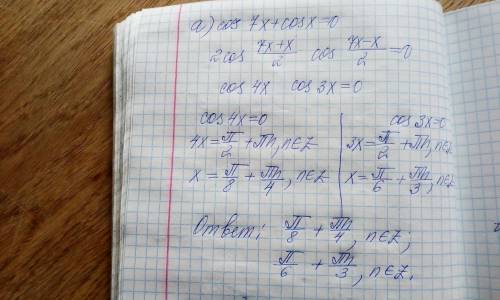 а) cos 7x + cos x = 0
2 cos (7x+x)/2 cos (7x-x)/2 = 0
cos 4x cos 3x = 0
cos 4x = 0 cos 3x = 0
4x = π/2 + πn, n∈Z 3x = π/2 + πn, n∈Z
x = π/8 + πn/4, n∈Z x = π/6 + πn/3, n∈Z
Ответ: π/8 + πn/4, n∈Z;
π/6 + πn/3, n∈Z.